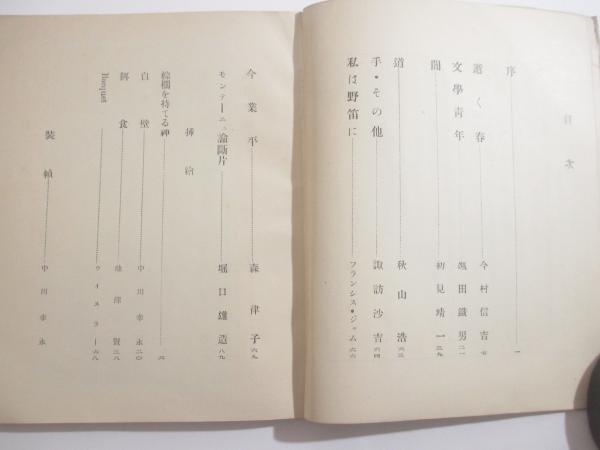 目次
序……一
逝く春……今村信吉
文學青年……田鐵男二一
闇……初見靖一三九
道……秋山浩六三
手・その他……諏訪沙吉六四
私は野笛に……フランシス・ジャム六六
今業平……森津子六九
モンテーニュ論斷片……堀口雄造八九
挿繪
棕櫚を持てる神……六
白壁……中川幸永二〇
餌食……賢三八
Bouquet……ウイスラー六八
裝幀……中川幸永